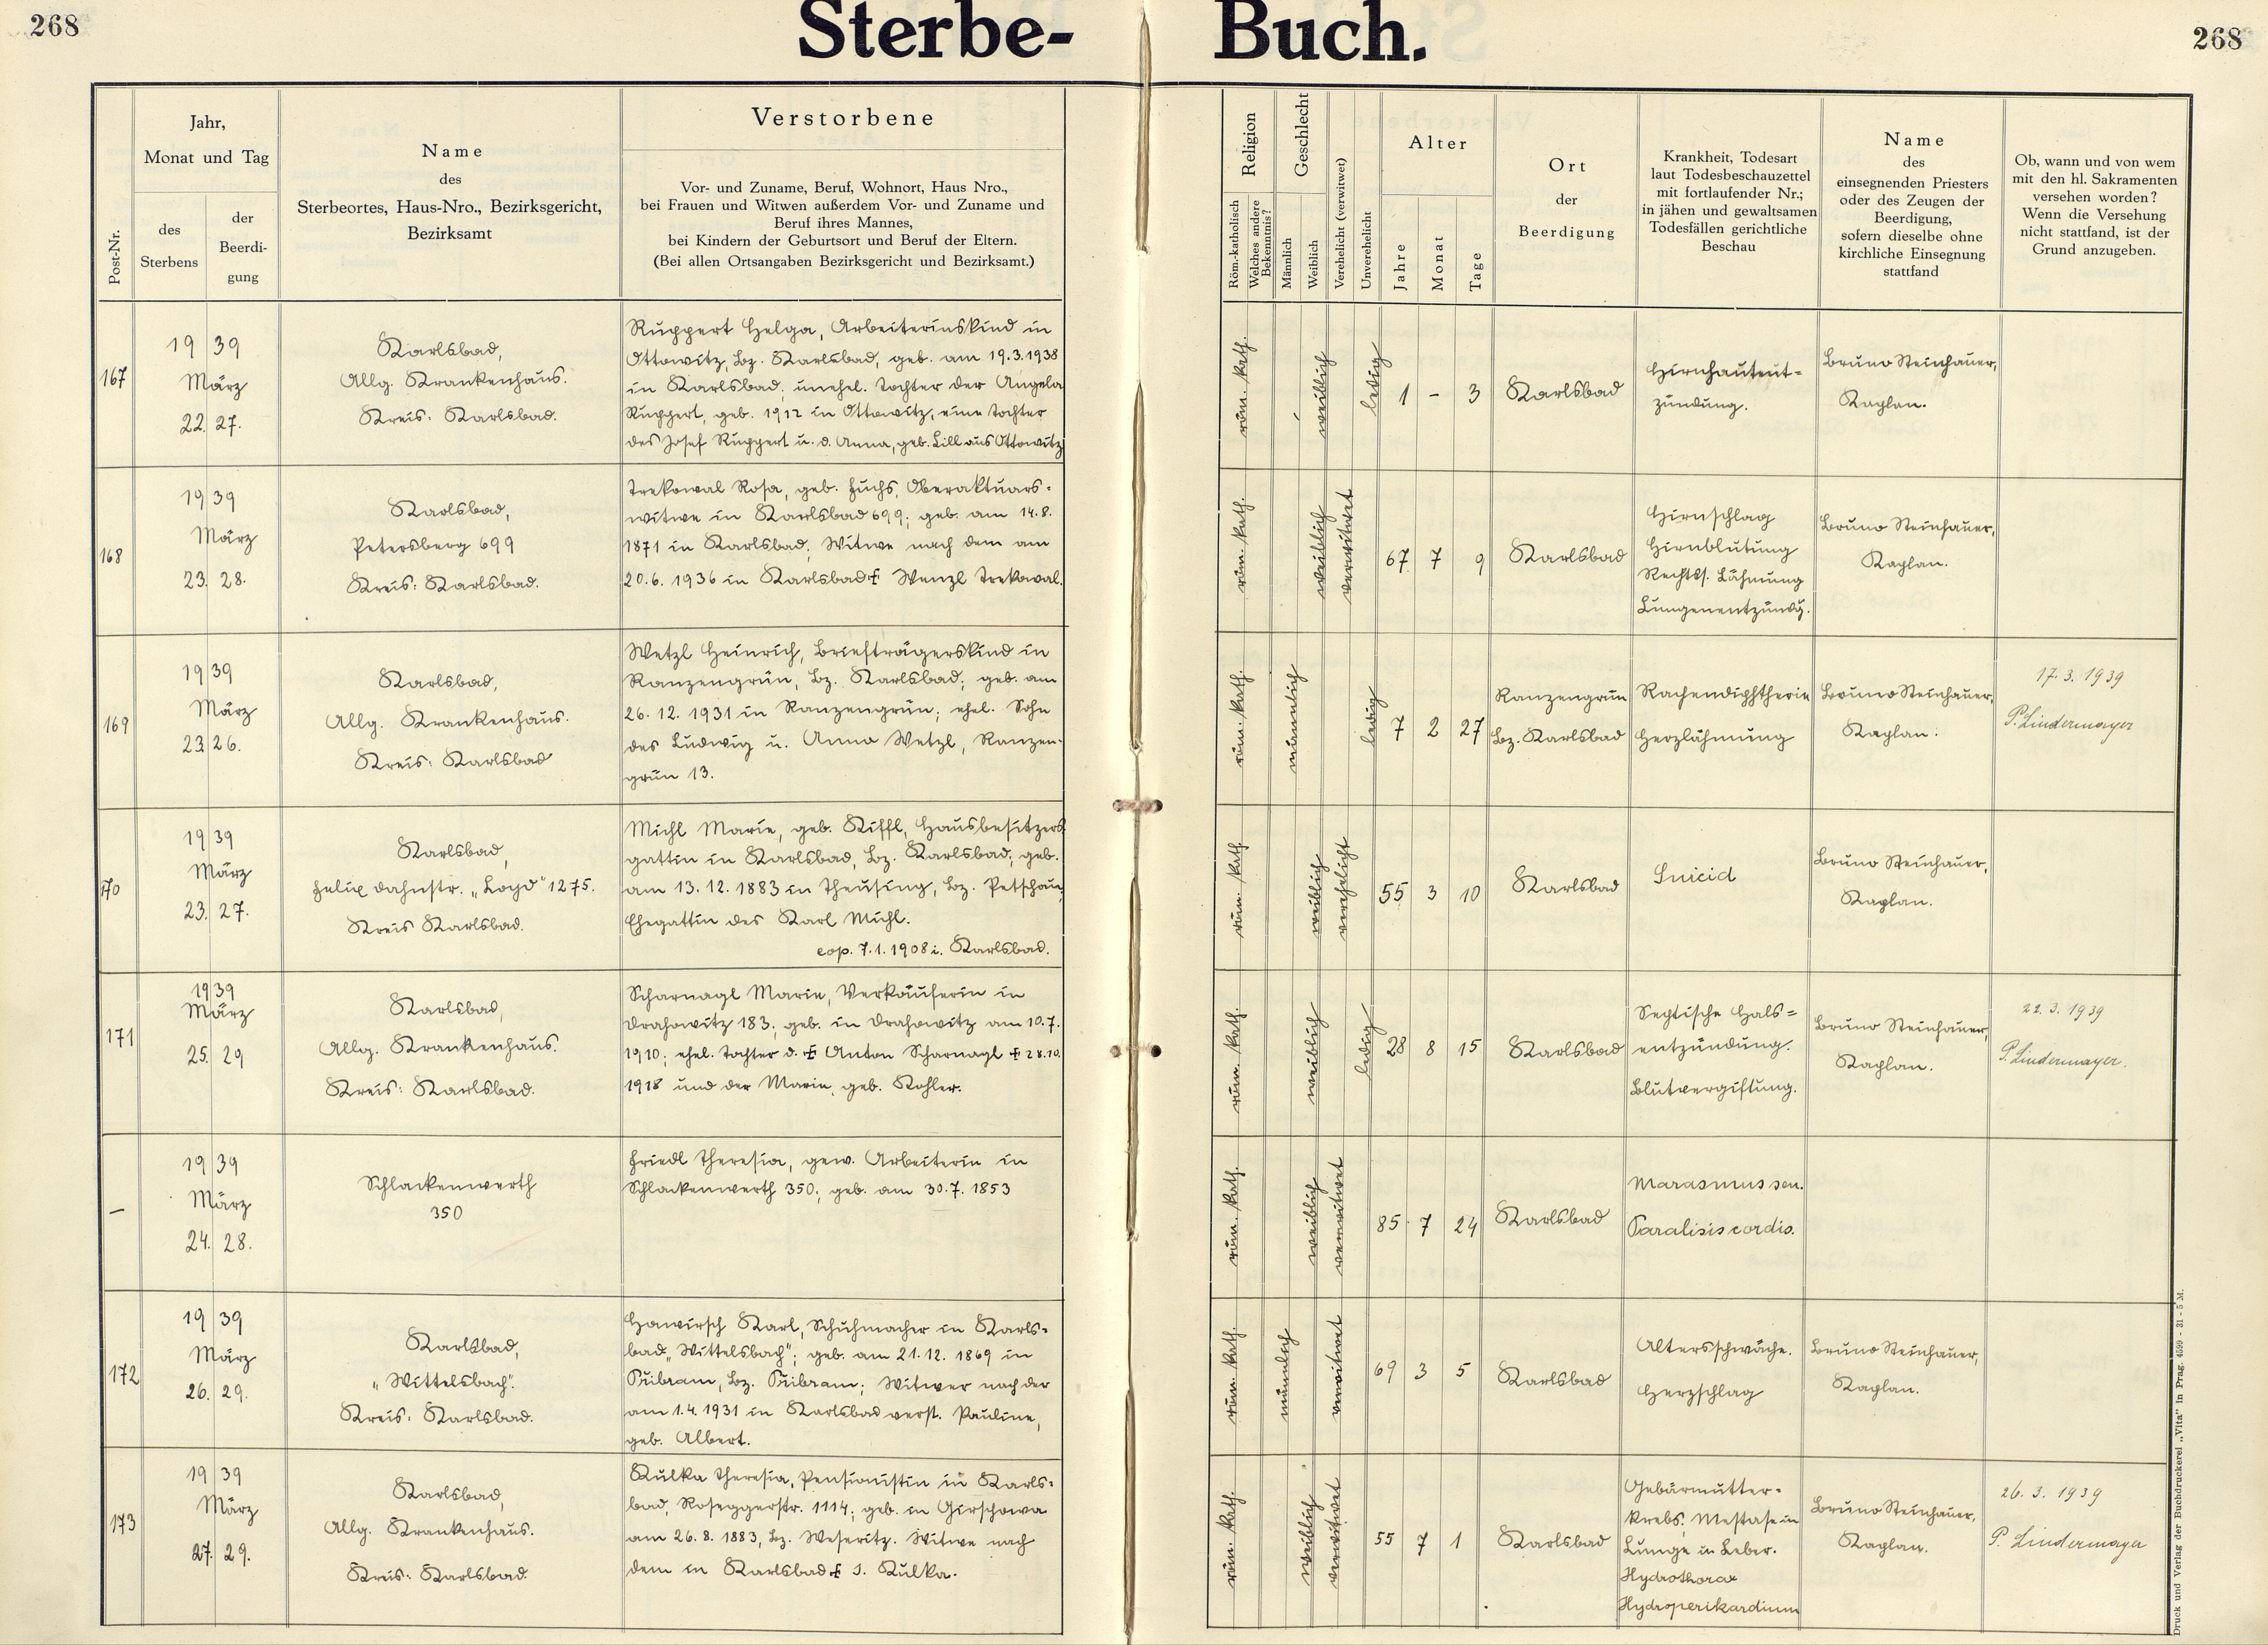 268
Sterbe-
Buch.
268
Post-Nr.
Jahr,
Monat und Tag
des
Sterbens
der
Beerdi-
gung
Name
des
Sterbeortes, Haus-Nro., Bezirksgericht,
Bezirksamt
Verstorbene
Vor- und Zuname, Beruf, Wohnort, Haus Nro.,
bei Frauen und Witwen außerdem Vor- und Zuname und
Beruf ihres Mannes,
bei Kindern der Geburtsort und Beruf der Eltern.
(Bei allen Ortsangaben Bezirksgericht und Bezirksamt.)
Religion
Röm.-katholisch
Welches andere
Bekenntnis?
Geschlecht
Männlich
Weiblich
Verehelicht (verwitwet)
Unverehelicht
Alter
Jahre
Monat
Tage
Ort
der
Beerdigung
Krankheit, Todesart
laut Todesbeschauzettel
mit fortlaufender Nr.;
in jähen und gewaltsamen
Todesfällen gerichtliche
Beschau
Name
des
einsegnenden Priesters
oder des Zeugen der
Beerdigung,
sofern dieselbe ohne
kirchliche Einsegnung
stattfand
Ob, wann und von wem
mit den hl. Sakramenten
versehen worden?
Wenn die Versehung
nicht stattfand, ist der
Grund anzugeben.
167
19 39
März
22. 27.
Karlsbad,
Allg. Krankenhaus.
Kreis: Karlsbad.
Ruppert Helga, Arbeiterinskind in
Ottowitz, Bz. Karlsbad, geb. am 19.3.1938
in Karlsbad; unehel. Tochter der Angela
Ruppert, geb. 1912 in Ottowitz, eine Tochter
des Josef Ruppert u. d. Anna, geb. Lill aus Ottowitz
röm. kath.
weiblich
ledig
1 - 3
Karlsbad
Hirnhautent-
zündung.
Bruno Steinhauer,
Kaplan.
168
19 39
März
23. 28.
Karlsbad,
Petersberg 699
Kreis: Karlsbad.
Trekowal Rosa, geb. Fuchs, Oberaktuars-
witwe in Karlsbad 699; geb. am 14.8.
1871 in Karlsbad; Witwe nach dem am
20.6.1936 in Karlsbad ✝ Wenzl Trekowal.
röm. kath.
weiblich
verwitwet
67 7 9
Karlsbad
Hirnschlag
Hirnblutung
Rechtss. Lähmung
Lungenentzündg.
Bruno Steinhauer,
Kaplan.
169
19 39
März
23. 26.
Karlsbad,
Allg. Krankenhaus.
Kreis: Karlsbad
Wetzl Heinrich, Briefträgerskind in
Ranzengrün, Bz. Karlsbad; geb. am
26.12.1931 in Ranzengrün; ehel. Sohn
des Ludwig u. Anna Wetzl, Ranzen-
grün 13.
röm. kath.
männlich
ledig
7 2 27
Ranzengrün
Bz. Karlsbad
Rachendiphtherie
Herzlähmung
Bruno Steinhauer,
Kaplan.
17.3.1939
P. Lindermayer
170
19 39
März
23. 27.
Karlsbad,
Felix Dahnstr. „Loyd" 1275.
Kreis Karlsbad.
Michl Marie, geb. Kiffl, Hausbesitzers
gattin in Karlsbad, Bz. Karlsbad; geb.
am 13.12.1883 in Theusing, Bz. Petschau,
Ehegattin des Karl Michl.
cop. 7.1.1908 i. Karlsbad.
röm. kath.
weiblich
verehelicht
55 3 10
Karlsbad
Suicid
Bruno Steinhauer,
Kaplan.
171
19 39
März
25. 29
Karlsbad,
Allg. Krankenhaus.
Kreis: Karlsbad.
Scharnagl Marie, Verkäuferin in
Drahowitz 183; geb. in Drahowitz am 10.7.
1910; ehel. Tochter d. ✝ Anton Scharnagl ✝ 28.10.
1918 und der Marie, geb. Kohler.
röm. kath.
weiblich
ledig
28 8 15
Karlsbad
Septische Hals-
entzündung.
Blutvergiftung.
Bruno Steinhauer,
Kaplan.
22.3.1939
P. Lindermayer.
-
19 39
März
24. 28.
Schlackenwerth
350
Friedl Theresia, gew. Arbeiterin in
Schlackenwerth 350; geb. am 30.7.1853
röm. kath.
weiblich
verwitwet
85 7 24
Karlsbad
Marasmus sen.
Paralisis cordis.
172
19 39
März
26. 29.
Karlsbad,
„Wittelsbach".
Kreis: Karlsbad.
Hawirsch Karl, Schuhmacher in Karls-
bad „Wittelsbach"; geb. am 21.12.1869 in
Přibram, Bz. Přibram; Witwer nach der
am 1.4.1931 in Karlsbad verst. Pauline,
geb. Albert.
röm. kath.
männlich
verwitwet
69 3 5
Karlsbad
Altersschwäche.
Herzschlag
Bruno Steinhauer,
Kaplan.
173
19 39
März
27. 29.
Karlsbad,
Allg. Krankenhaus.
Kreis: Karlsbad.
Kulka Theresia, Pensionistin in Karls-
bad, Roseggerstr. 1114; geb. in Girschowa
am 26.8.1883, Bz. Weseritz. Witwe nach
dem in Karlsbad ✝ J. Kulka.
röm. kath.
weiblich
verwitwet
55 7 1
Karlsbad
Gebärmutter-
krebs, Mestase in
Lunge u. Leber.
Hydrothorax
Hydroperikardium
Bruno Steinhauer,
Kaplan.
26.3.1939
P. Lindermayer
Druck und Verlag der Buchdruckerei „Vita" in Prag. 4599 - 31 - 5 M.